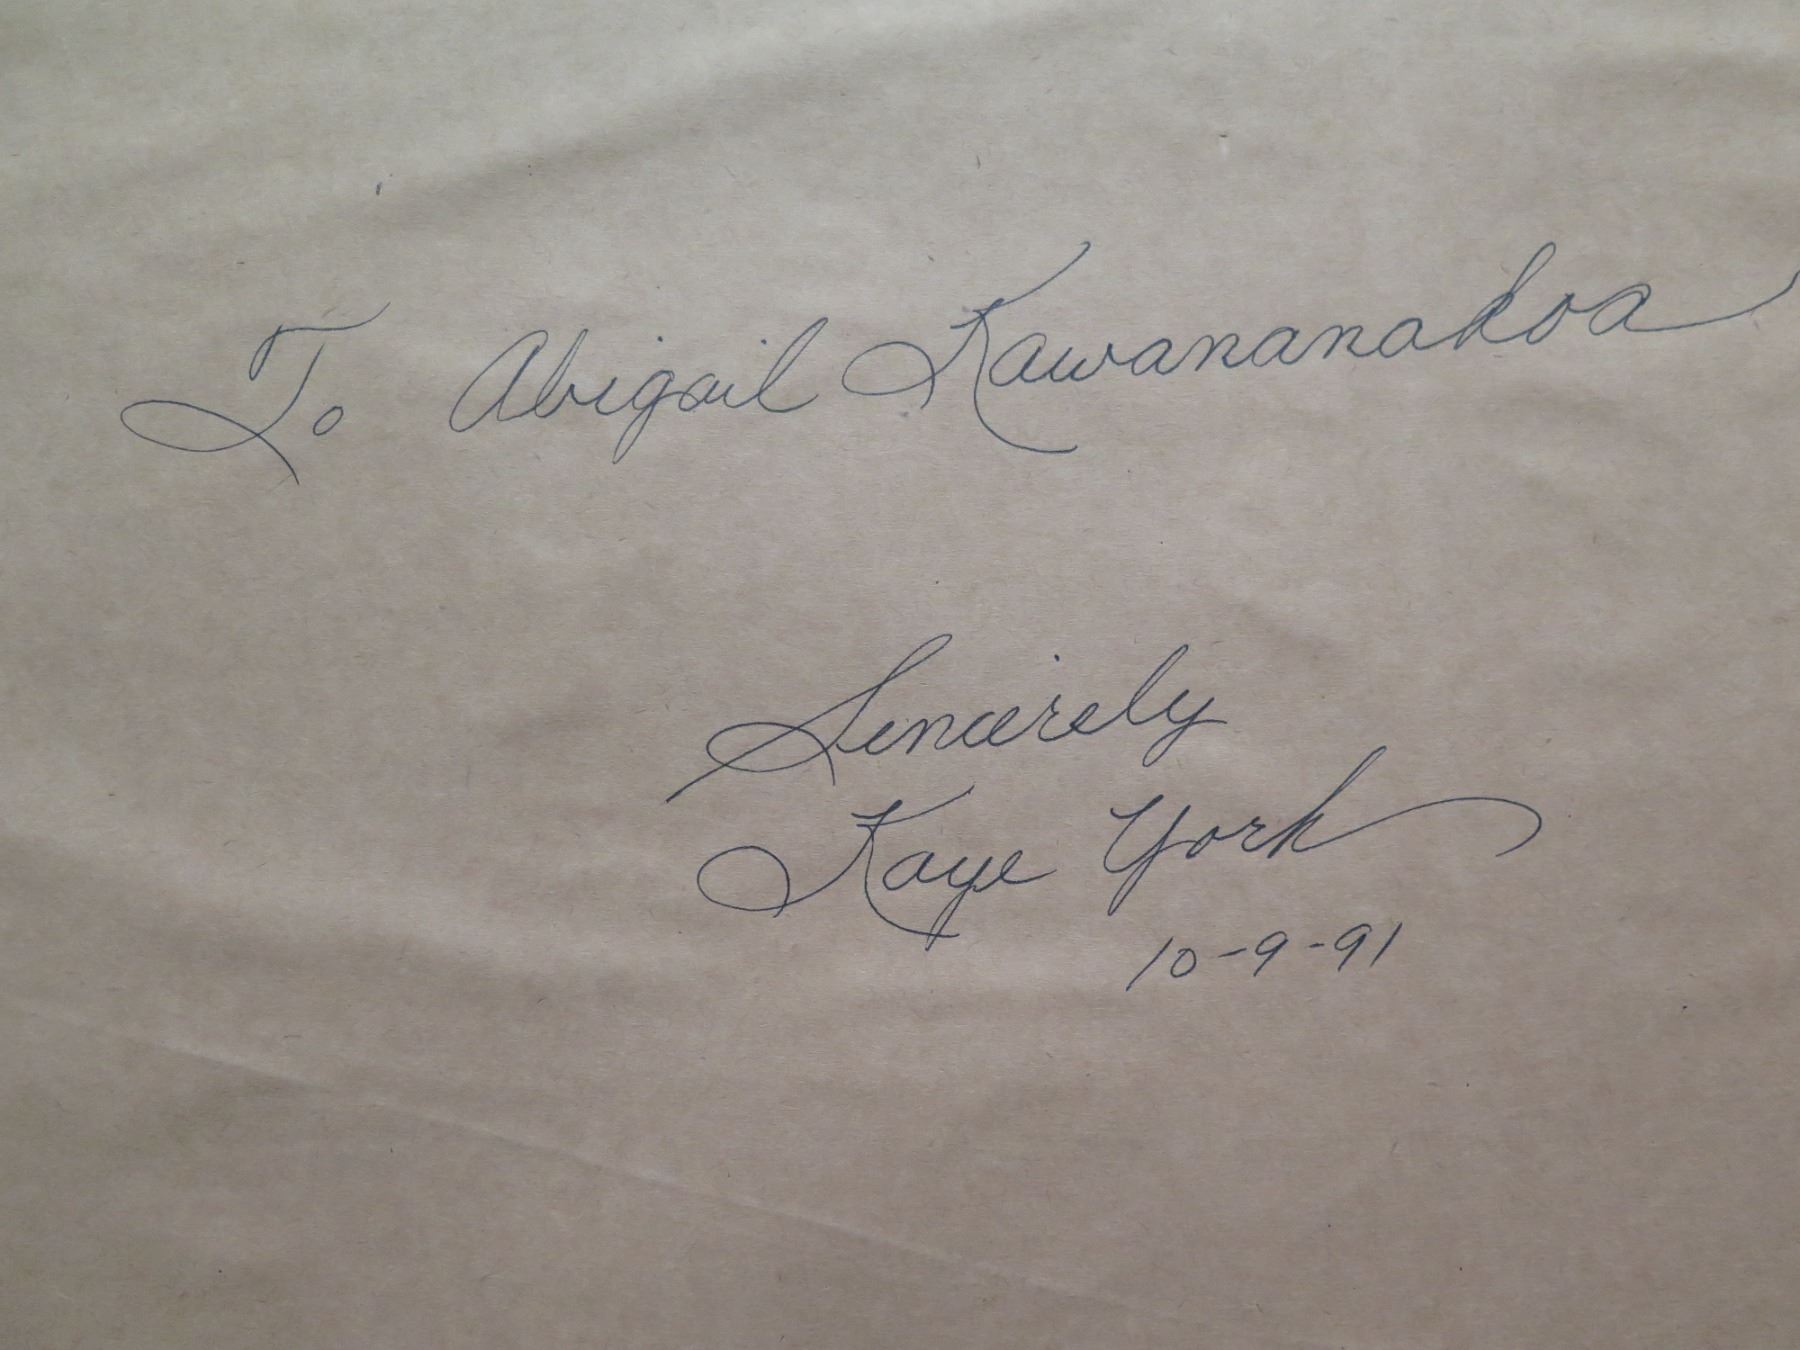 To Abigail Kawananakoa
Sincerely
Kaye York
10-9-91